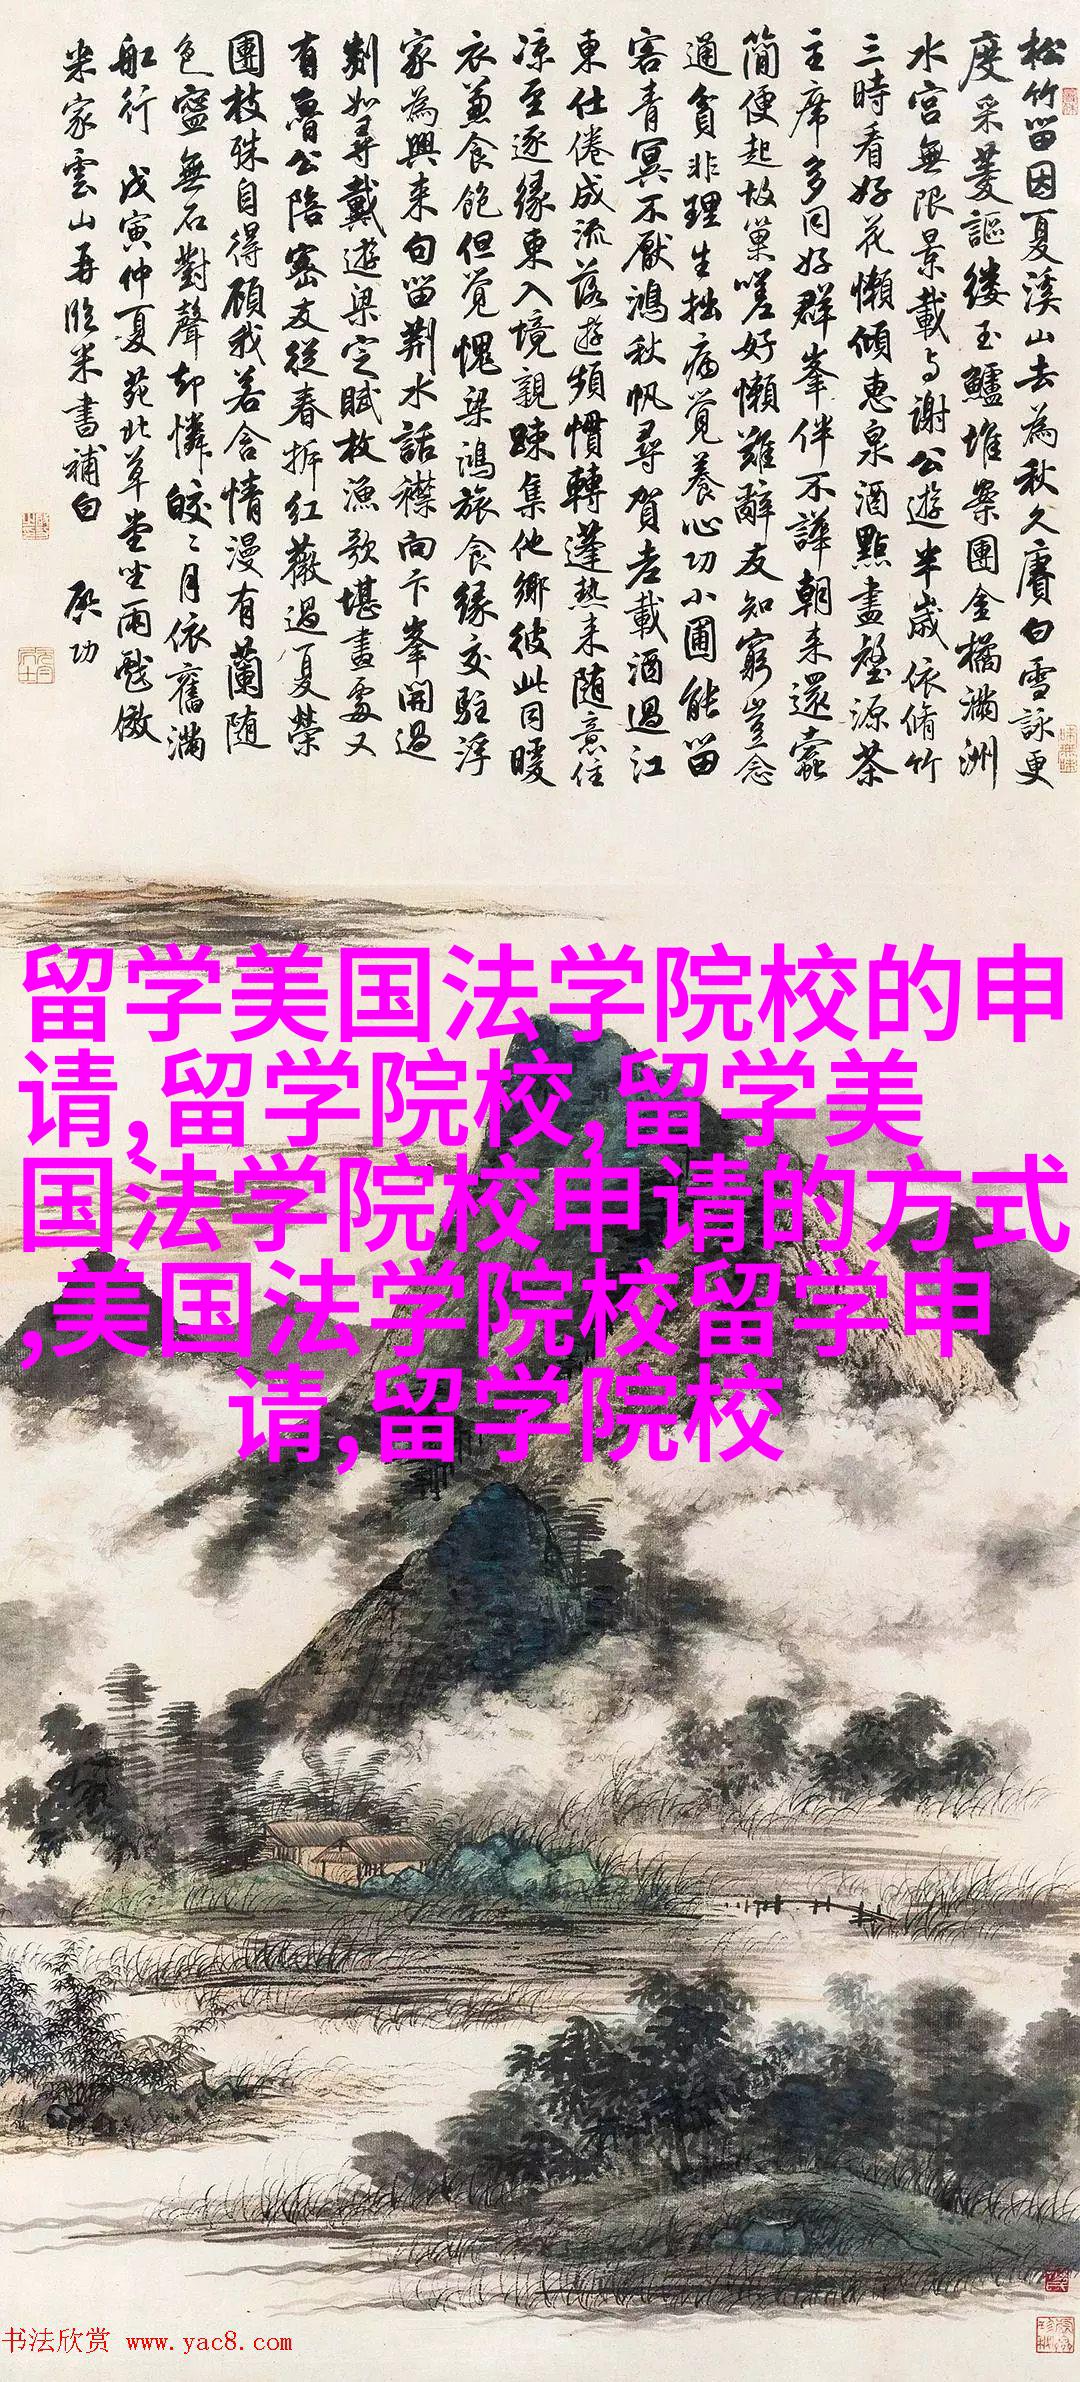 松竹留因夏溪山去為秋久賡白雪詠更
度采菱謳縷玉鱸堆案團金橘滿洲
水宮無限景載与謝公遊半歲依脩竹
三時看好花懶傾惠泉酒點盡壑源茶
主席多同好群峯伴不譁朝来還蠹
簡便起故巢嗟好懶難辭友知窮豈念
通貧非理生拙病覺養心功小圃能留
客青冥不厭鴻秋帆尋賀老載酒過江
東仕倦成流落遊頻慣轉蓬熱来随意住
凉至逐緣東入境親疎集他鄉彼此同暖
衣兼食飽但覺愧梁鴻旅食緣交駐浮
家為興来句留荆水話襟向卞峯開過
剡如尋戴遊梁定賦枚漁歌堪畫處又
有魯公陪密友從春拆紅薇過夏榮
團枝殊自得顧我若含情漫有蘭随
色寧無石對聲却憐皎〻月依舊滿
舡行 戊寅仲夏苑北草堂坐雨戲倣
米家雲山再臨米書補白 啓功
留学美国法学院校的申
请,留学院校,留学美
国法学院校申请的方式
,美国法学院校留学申
请,留学院校
书法欣赏 www.yac8.com